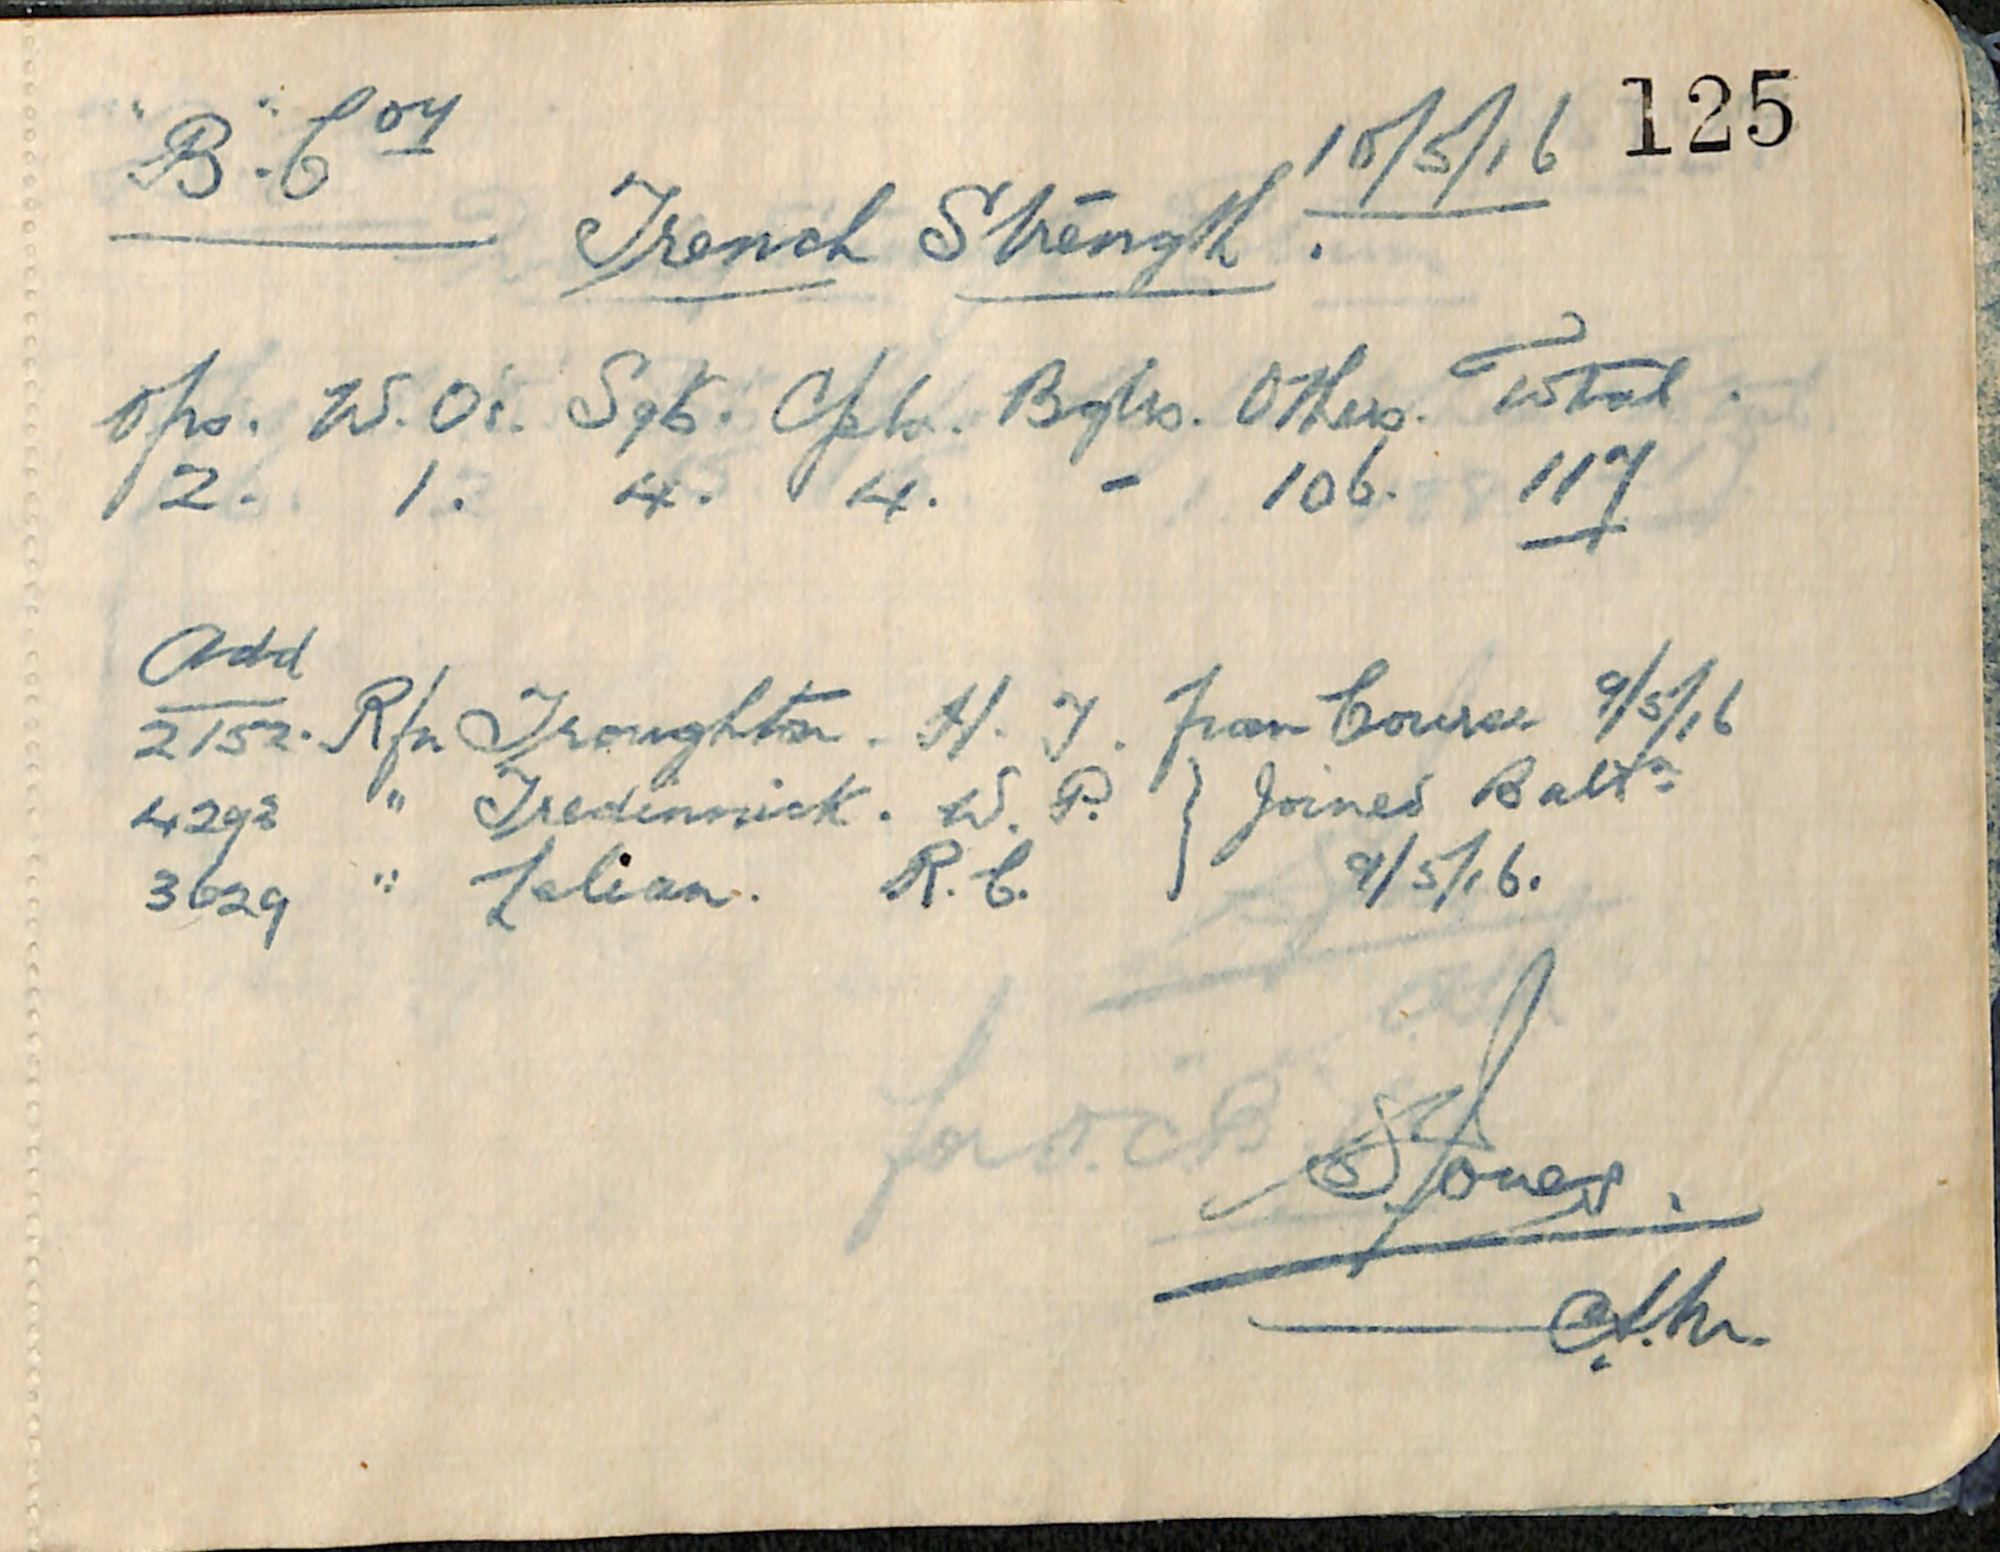 125
"B" Coy 10/5/16
Trench Strength.
Ofrs. W.Os. Sgts. Cpls. Bglrs. Others. Total.
2. 1. 4. 4. - 106. 117
Add
2152. Rfn Troughton. H. J. from Course 9/5/16
4298 " Tredinnick. W. P. } Joined Battn
3629 " Lelian. R. C. } 9/5/16.
for O.C. B
Jones.